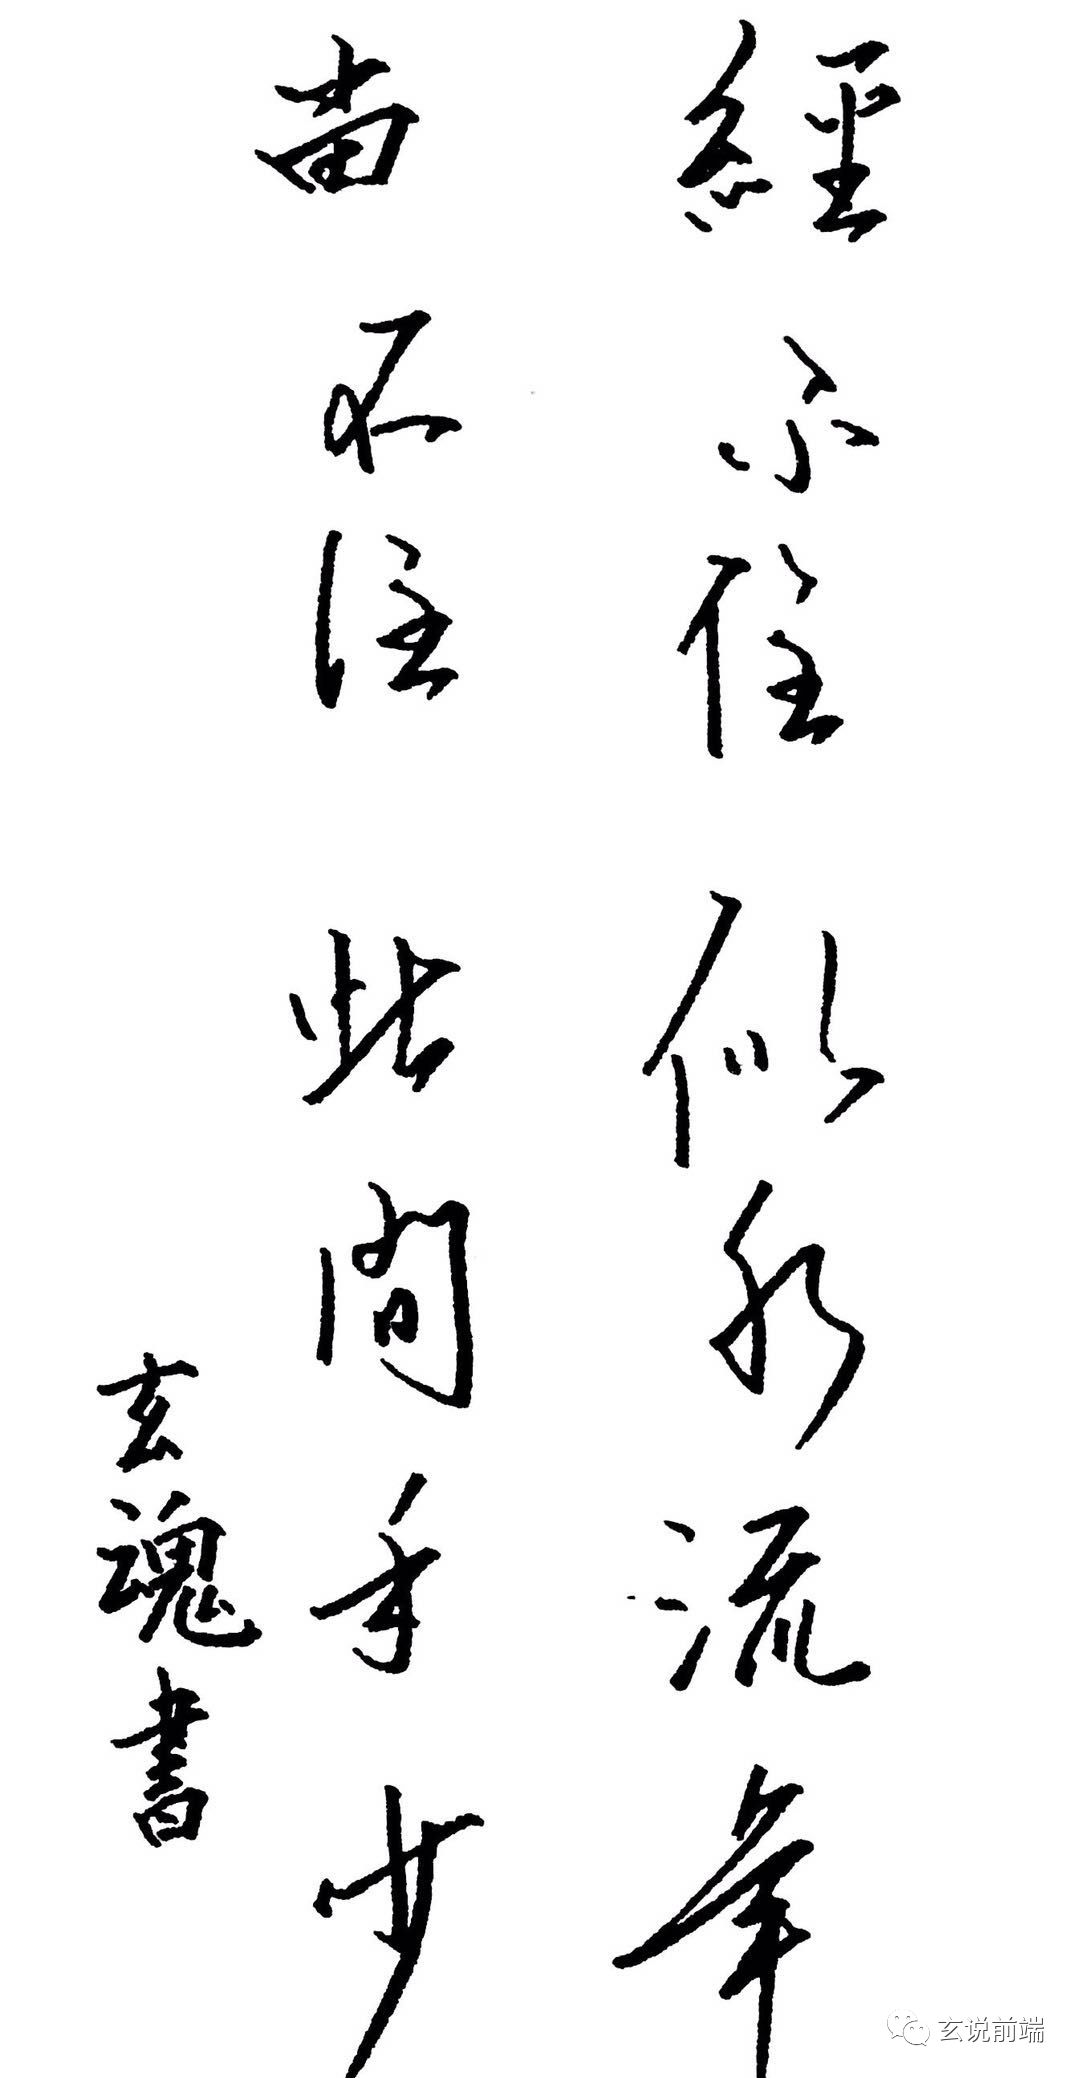 經不住似水流年
當不住此間年少
玄魂書
玄说前端